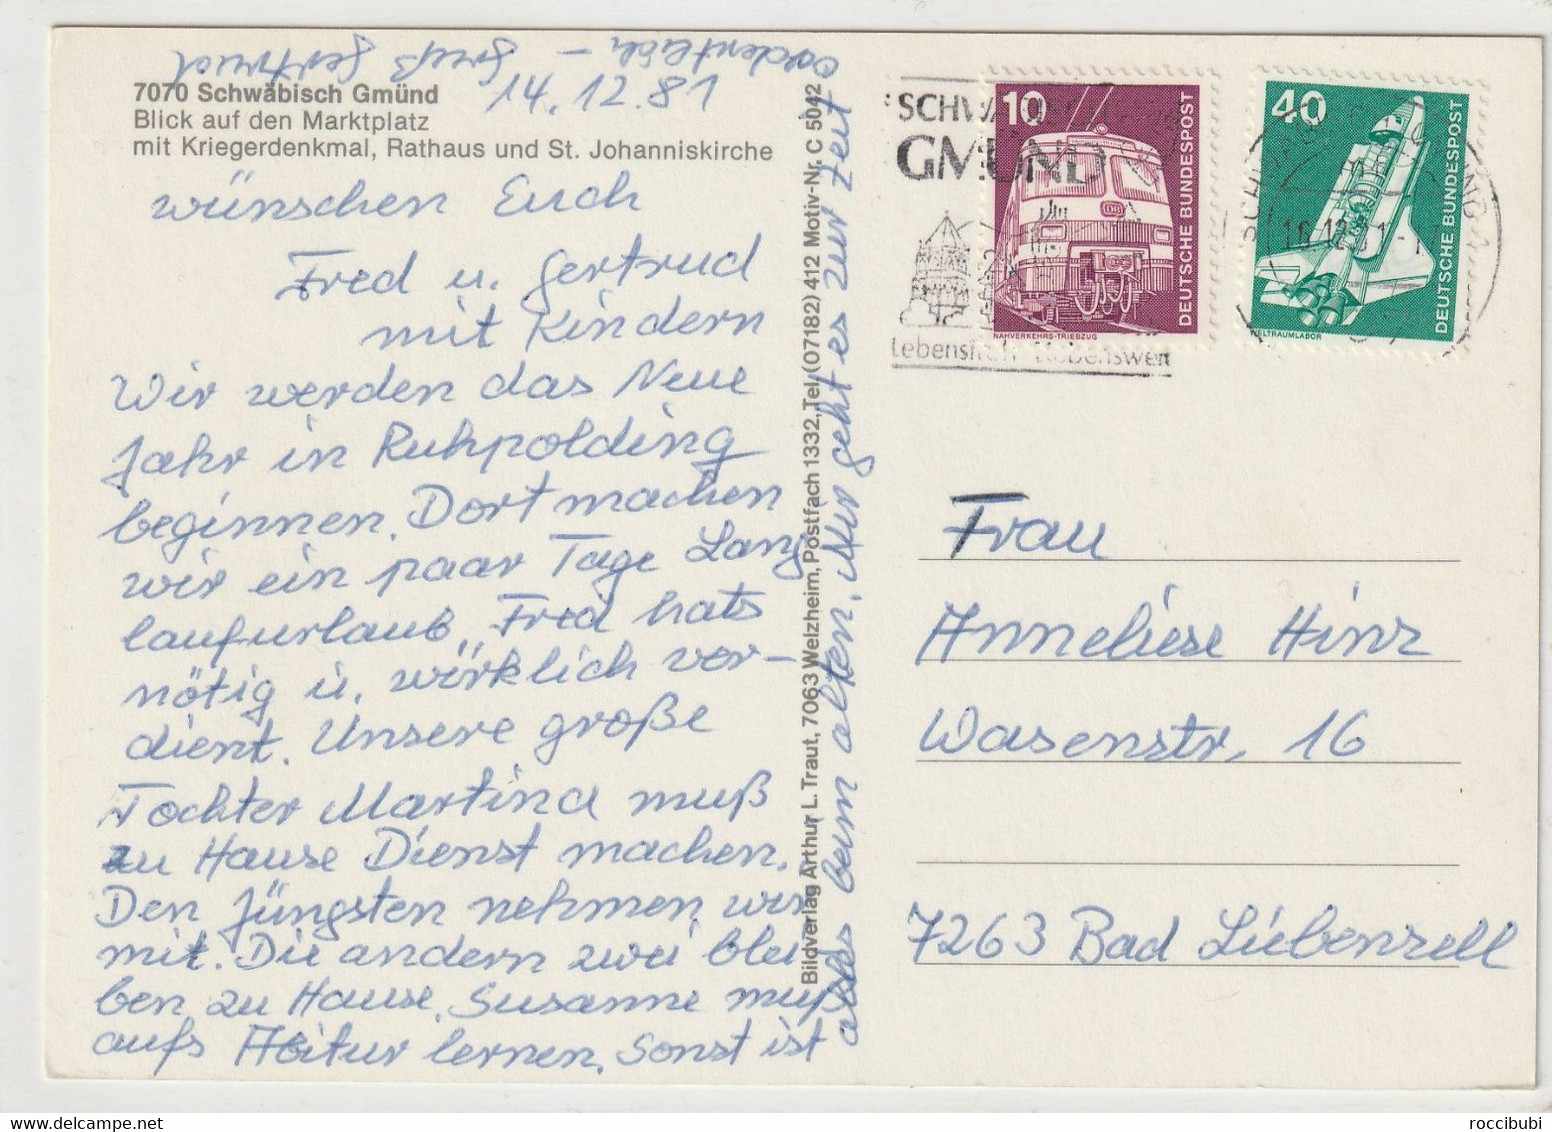 7070 Schwäbisch Gmünd
Blick auf den Marktplatz
mit Kriegerdenkmal, Rathaus und St. Johanniskirche
14.12.81
wünschen Euch
Fred u. Gertrud
mit Kindern
Wir werden das Neue
Jahr in Ruhpolding
beginnen. Dort machen
wir ein paar Tage Lang
laufurlaub, Fred hats
nötig u. wirklich ver-
dient. Unsere große
Tochter Martina muß
zu Hause Dienst machen.
Den Jüngsten nehmen wir
mit. Die andern zwei blei
ben zu Hause. Susanne muß
aufs Abitur lernen. Sonst ist
alles beim alten, Mir geht es zur Zeit
ordentlich - Gruß Gertrud
Bildverlag Arthur L. Traut, 7063 Welzheim, Postfach 1332, Tel. (07182) 412 Motiv-Nr. C 5042
SCHWÄ
GMÜND
10
DEUTSCHE BUNDESPOST
NAHVERKEHRS-TRIEBZUG
40
DEUTSCHE BUNDESPOST
WELTRAUMLABOR
Frau
Anneliese Hinz
Wasenstr. 16
7263 Bad Liebenzell
roccibubi